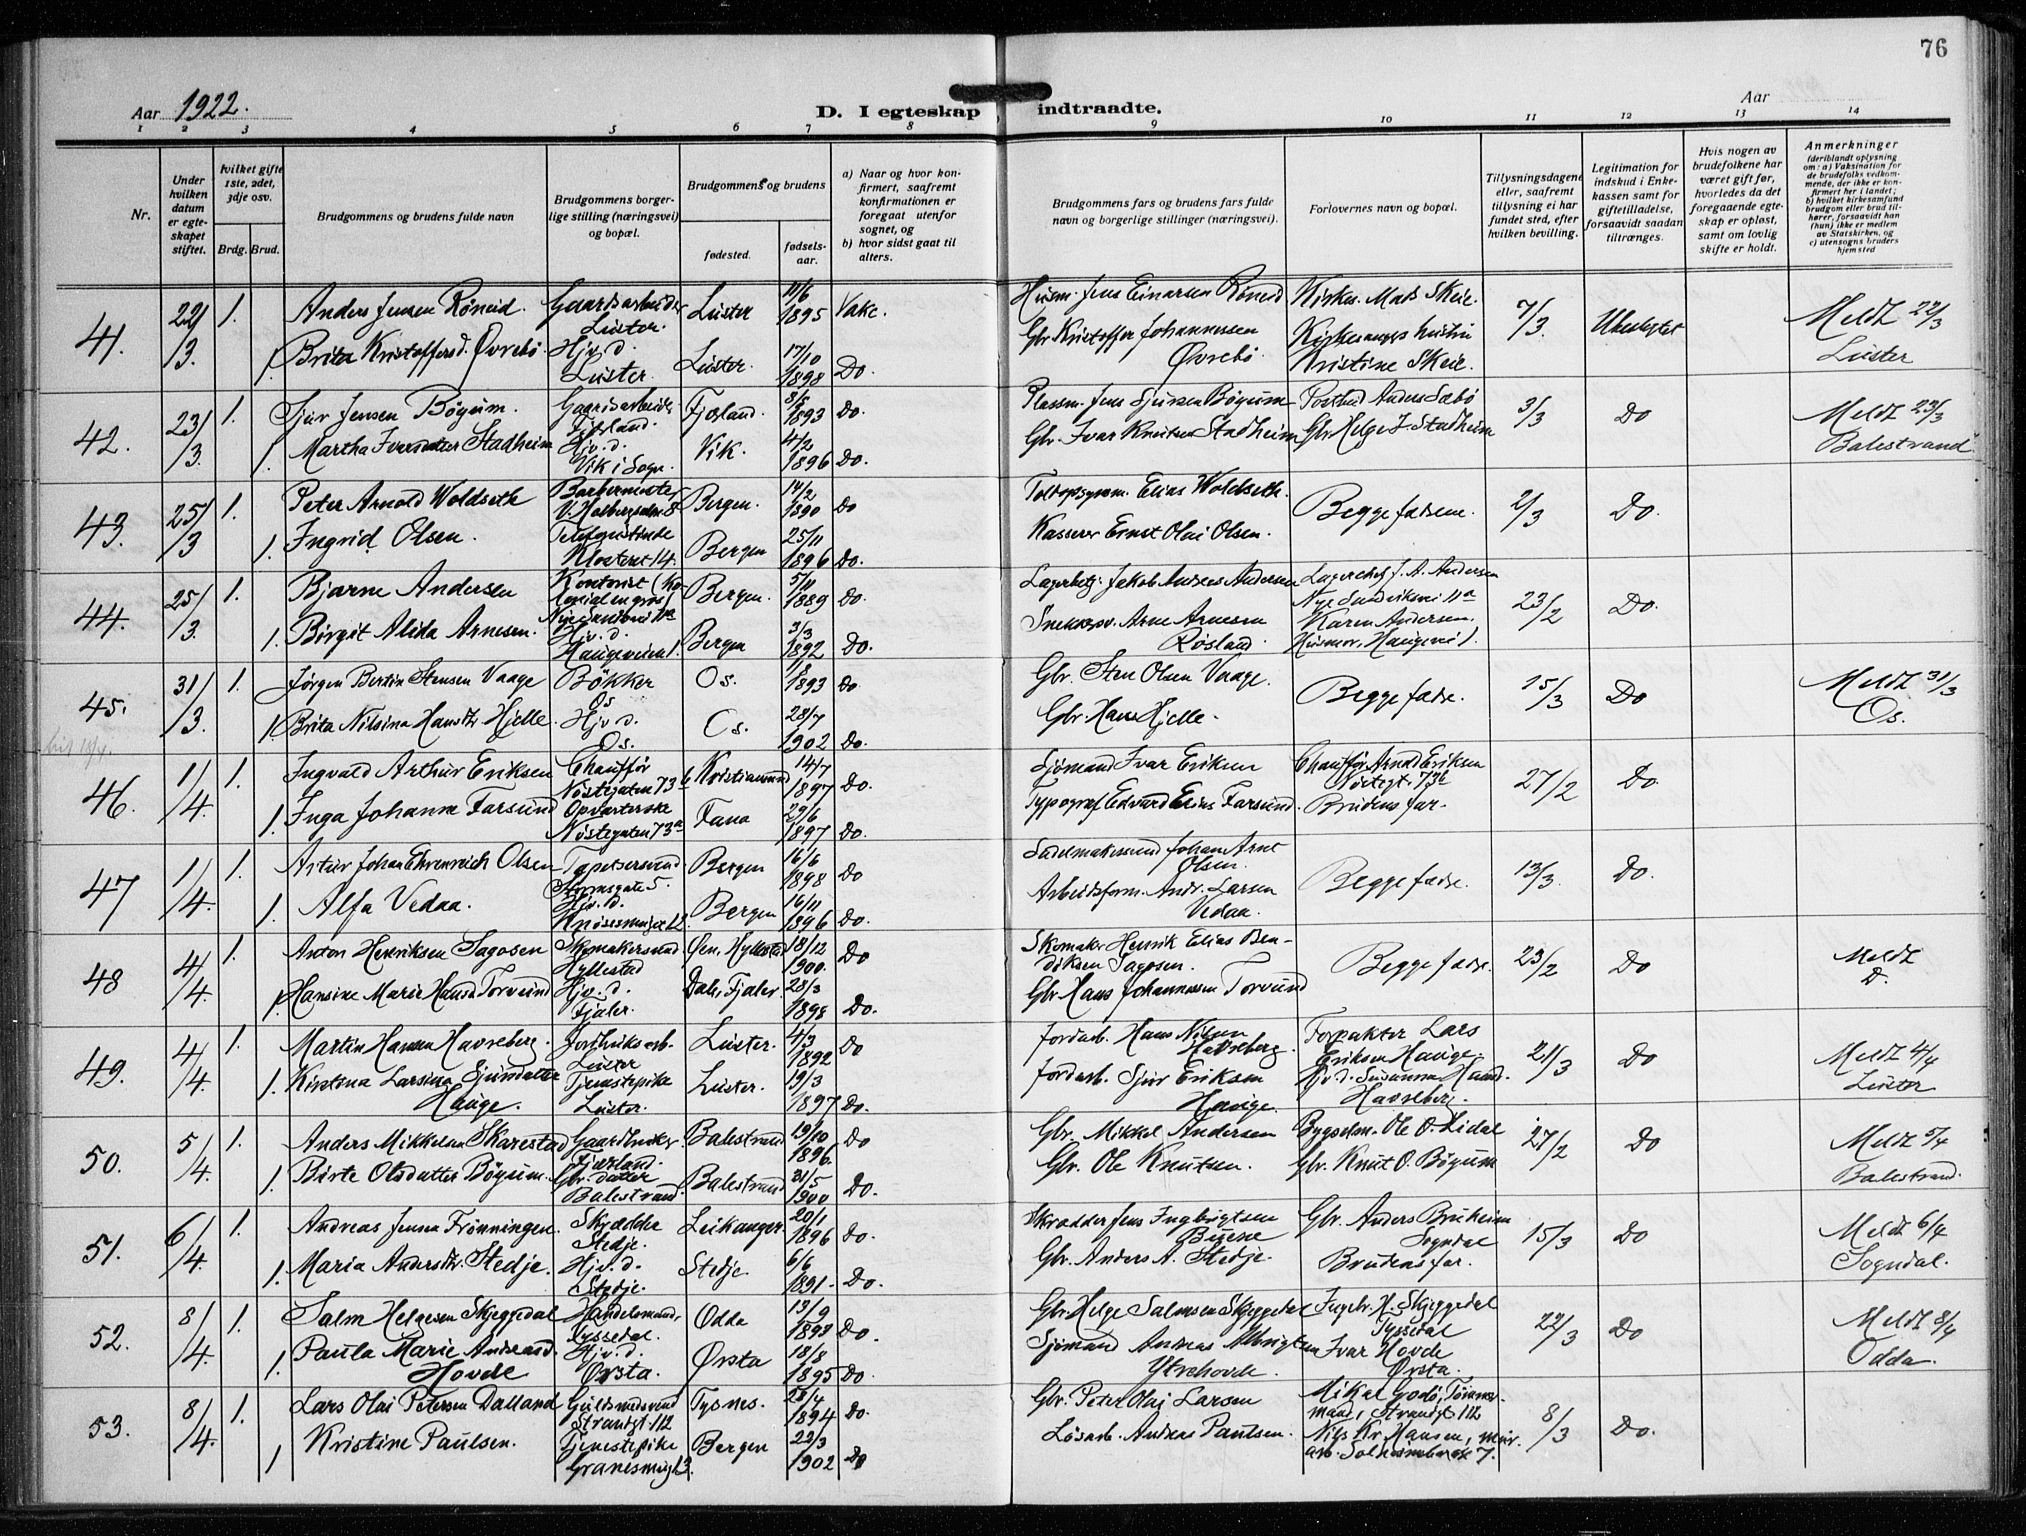 76
Aar 1922.
D. I egteskap indtraadte.
Aar
1 2 3 4 5 6 7 8 9 10 11 12 13 14
Nr.
Under hvilken datum er egteskapet stiftet.
hvilket gifte 1ste, 2det, 3dje osv.
Brdg. Brud.
Brudgommens og brudens fulde navn
Brudgommens borgerlige stilling (næringsvei) og bopæl.
Brudgommens og brudens
fødested.
fødselsaar.
a) Naar og hvor konfirmert, saafremt konfirmationen er foregaat utenfor sognet, og
b) hvor sidst gaat til alters.
Brudgommens fars og brudens fars fulde navn og borgerlige stillinger (næringsvei).
Forlovernes navn og bopæl.
Tillysningsdagene eller, saafremt tillysning ei har fundet sted, efter hvilken bevilling.
Legitimation for indskud i Enkekassen samt for giftetilladelse, forsaavidt saadan tiltrænges.
Hvis nogen av brudefolkene har været gift før, hvorledes da det foregaaende egteskap er opløst, samt om lovlig skifte er holdt.
Anmerkninger
(deriblandt oplysning om: a) Vaksination for de brudefolks vedkommende, der ikke er konfirmert her i landet; b) hvilket kirkesamfund brudgom eller brud tilhører, forsaavidt han (hun) ikke er medlem av Statskirken, og c) utensogns bruders hjemsted
41. 22/3 1. Anders Jensen Röneid. Gaardsarbeider Luster. Luster 11/6 1895 Vakc. Husm. Jens Einarsen Röneid Kirkes. Mads Skeie. 7/3. Meldt 22/3 Luster
1. Brita Kristoffersd. Øvrebö Hjv. d. Luster. Luster. 17/10 1898 Do. Gbr. Kristoffer Johannessen Øvrebö. Kristine Skeie.
42. 23/3. 1. Sjur Jensen Bøyum. Gaardsarbeider Fjærland. Fjærland. 8/8 1893 Do. Plassm. Jens Sjursen Bøyum Postbud Anders Sæbö 3/3 Do Meldt 23/3 Balestrand
1. Martha Iversdatter Stadheim Hjv. d. Vik i Sogn. Vik. 4/2 1896 Do. Gbr. Ivar Knutsen Stadheim Gbr. Helge I. Stadheim
43. 25/3 1. Peter Arnold Woldseth Barbermester Bergen. 14/2 1890 Do Elias Woldseth. Begge fædrene. 2/3 Do.
1. Ingrid Olsen. Telefonistinde Klosteret 14. Bergen 25/11 1896 Do. Kasserer Ernst Olai Olsen.
44. 25/3. 1. Bjarne Andersen Kontorist (Kolonial en gros) Nye Sandviksvei 11a Bergen. 5/11 1889 Do. Jakob Andreas Andersen Lagerchef J. A. Andersen Nye Sandviksvei 11a 23/2 Do.
1. Birgit Alida Arnesen. Hjv. d. Haugeveien 1. Bergen 3/3 1892 Do. Arne Arnesen Røsland. Karen Andersen, Husmor, Haugevei 1.
45. 31/3 1. Jørgen Bertin Stensen Vaage Bökker Os Os. 1/8 1893 Do Gbr. Sten Olsen Vaage. Begge fædre. 15/3 Do Meldt 31/3 Os.
1. Brita Nilsina Hansdtr. Hjelle. Hjv. d. Os. Os. 28/7 1902 Do. Gbr. Hans Hjelle.
46. 1/4. 1. Ingvald Arthur Eriksen Chauffør Nöstegaten 73 b Kristiansund 14/7 1897 Do. Sjömand Ivar Eriksen Chauffør Arnold Eriksen Nöstegt. 73b 27/2 Do.
1. Inga Johanne Farsund Opvarterske Nöstegaten 73a Fana 29/6 1897 Do. Typograf Edvard Elias Farsund. Brudens far.
47 1/4. 1. Artur Johan Ehrenreich Olsen Tapetsersvend Bergen 16/6 1898 Do Sadelmakersvend Johan Arnt Olsen. Begge fædre. 13/3. Do.
1. Alfa Vedaa. Hjv. d. Knösesmuget 12. Bergen 16/11 1896 Do. Arbeidsform. Andr. Larsen Vedaa.
48 4/4. 1. Anton Henriksen Sagosen Skomakersvend Hyllestad Øen, Hyllestad 18/12 1900. Do Skomaker Henrik Elias Bendiksen Sagosen. Begge fædre. 23/2 Do Meldt D.
1. Hansine Marie Hansd. Torvund Hjv. d. Fjaler. Dale, Fjaler. 28/3 1898 Do. Gbr. Hans Johannessen Torvund
49. 4/4. 1. Martin Hansen Havreberg. Jordbruksarb. Luster Luster. 4/3 1892 Do Jordarb. Hans Nilsen Havreberg. Forpakter Lars Eriksen Hauge. 21/3 Do Meldt 4/4 Luster
1. Kristina Larsina Sjursdatter Hauge. Tjenestepike Luster. Luster. 19/3 1897 Do. Jordarb. Sjur Eriksen Hauge. Hjv. d. Susanna Havreberg.
50. 5/4. 1. Anders Mikkelsen Skarestad Gaardbruker Fjærland. Balestrand 19/10 1896. Do Gbr. Mikkel Andersen Bygselm. Ole O. Lidal 27/2 Do Meldt 5/4 Balestrand.
1. Birte Olsdatter Bøyum. Gbr. datter Balestrand. Balestrand 31/5 1900 Do. Gbr. Ole Knutsen. Gbr. Knut O. Bøyum
51. 6/4. 1. Andreas Jensen Frönningen. Skrædder Stedje. Leikanger 20/1 1896 Do. Skrædder Jens Ingbrigtsen Gbr. Anders Bruheim Sogndal 15/3 Do Meldt 6/4 Sogndal.
1. Maria Andersdtr. Stedje. Hjv. d. Stedje. Stedje 6/6 1891. Do. Gbr. Anders A. Stedje. Brudens far.
52. 8/4. 1. Salm Helgesen Skjeggedal Handelsmand, Tyssedal. Odda 13/9 1893 Do. Gbr. Helge Salmsen Skjeggedal Ingebr. H. Skjeggedal Tyssedal 22/3 Do Meldt 8/4 Odda.
1. Paula Marie Hovde Hjv. d. Ørsta. Ørsta 18/8 1895 Do. Sjömand Andreas Ytrehovde. Ivar Hovde Ørsta.
53. 8/4. 1. Lars Olai Petersen Dalland Guldsmedsvend Strandgt. 112 Tysnes. 28/4 1894 Do. Gbr. Peter Olai Larsen Mikal Godö, Tømmermand, Strandgt. 112 8/3 Do.
1 Kristine Paulsen. Tjenestepike Bergen 22/3 1902 Do Løsarb. Andreas Paulsen. Nils Kr. Hansen, murarb.